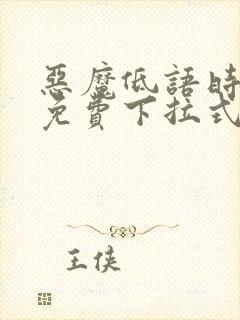 惡魔低語時
免費下拉式
王俠